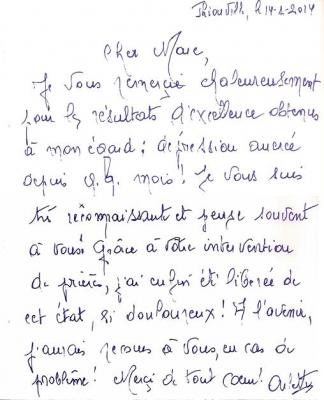 Thionville, le 14-2-2014
Cher Marc,
Je vous remercie chaleureusement
pour les résultats d'excellence obtenus
à mon égard : dépression ancré
depuis q.q. mois ! Je vous suis
très reconnaissant et pense souvent
à vous ! Grâce à votre intervention
de prières, j'ai enfin été libérée de
cet état, si douloureux ! A l'avenir,
j'aurais recours à vous, en cas de
problème ! Merçi de tout coeur !